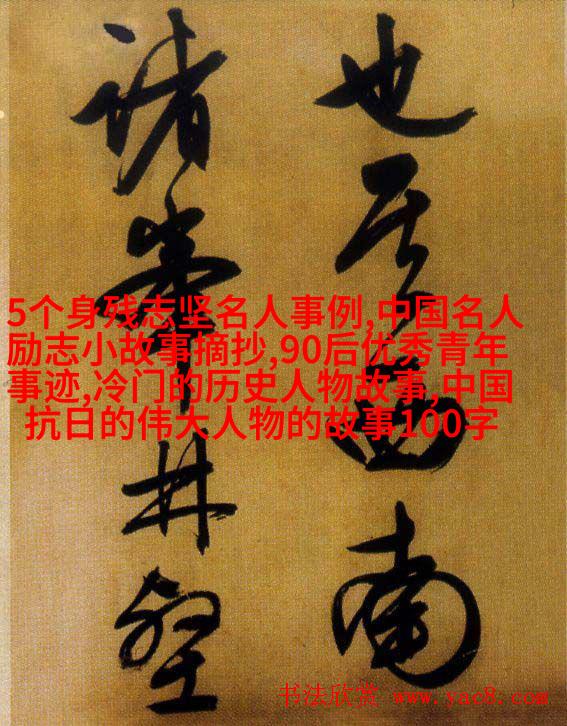 也其西南
諸峯林壑
5个身残志坚名人事例,中国名人
励志小故事摘抄,90后优秀青年
事迹,冷门的历史人物故事,中国
抗日的伟大人物的故事100字
书法欣赏 www.yac8.com